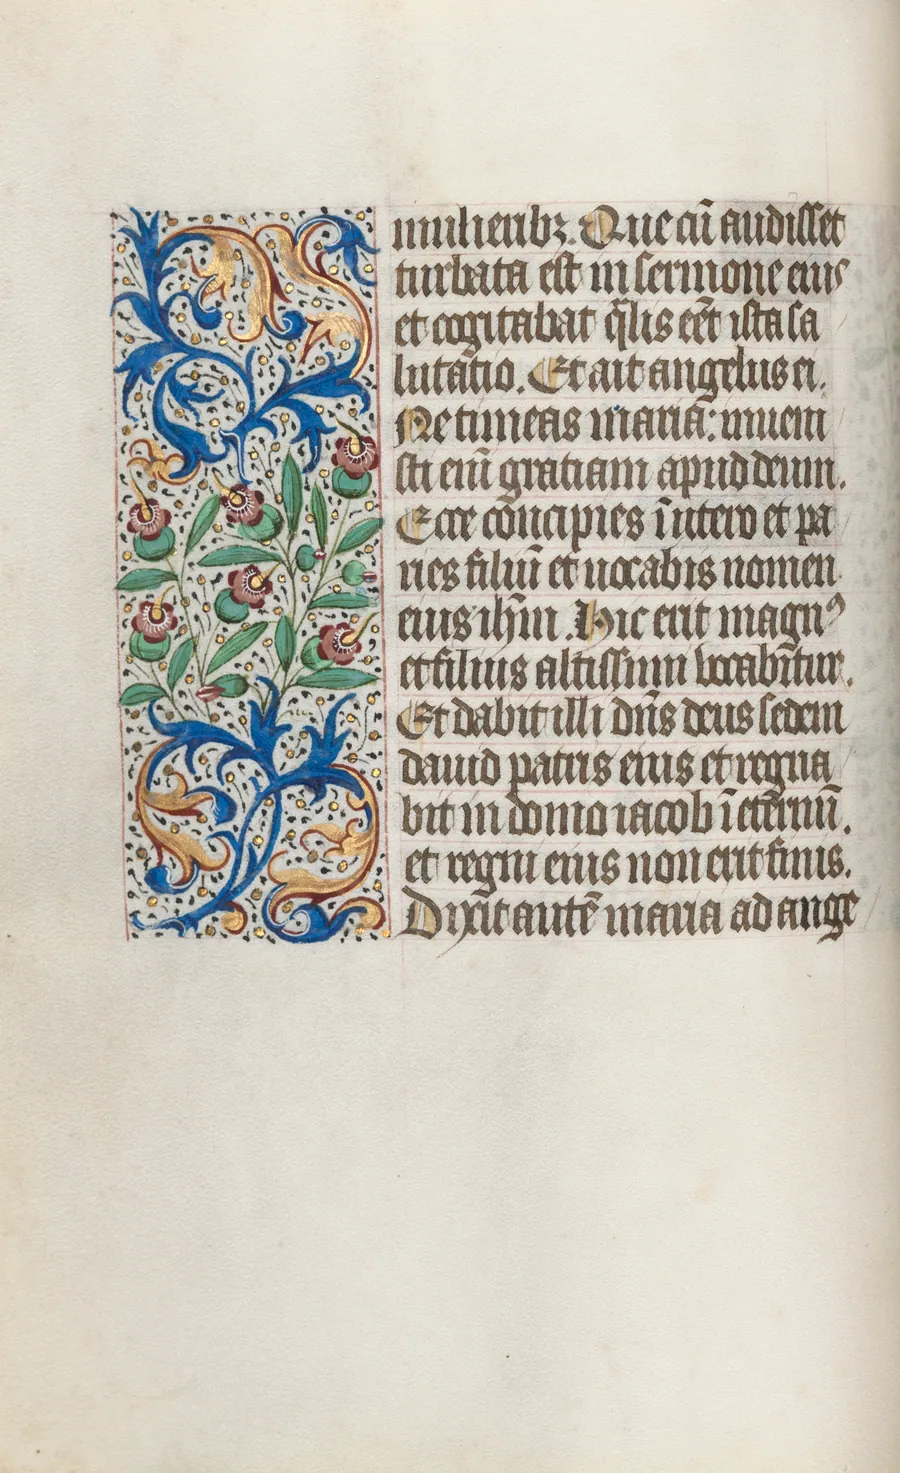 mulieribꝫ. Que cū audisset
turbata est in sermone eius
et cogitabat q̄lis eēt ista sa
lutatio. Et ait angelus ei.
Ne timeas maria: inueni
sti eīu gratiam apud deum.
Ecce cōncipies ī utero et pa
ries filiū et uocabis nomen
eius ihm̄. Hic erit magnꝰ
et filius altissimi vocabitur.
Et dabit illi dn̄s deus sedem
dauid patris eius et regna
bit in domo iacob ī eternū.
et regni eius non erit finis.
Dixit autē maria ad ange